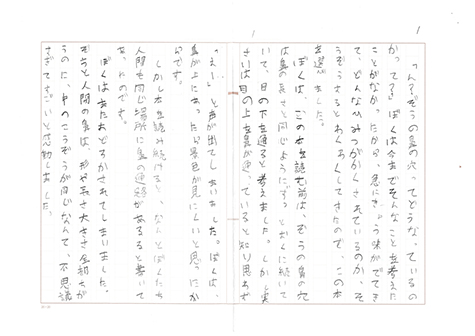 1
「んっ。ぞうの鼻の穴ってどうな、ているの
かってる」ぼくは今までそんなことを考えた
ことがなかったから、急にき、う味がでてき
て、どんなひみつがかくされているのか、そ
うぞうするとわくわくしてきたので、この本
を選びました。
ぼくは、この本を読む前は、ぞうの鼻の穴
は鼻の長さと同じように、口の近くに続いて
いて、目の下を通ると考えました。しかし実
さいは目の上を鼻が通っていると知り思わず
「えー」と声が出てしまいました。ぼくは、
鼻が上にあったら景色が見にくいと思ったか
らです。
しかし本を読み続けると、なんとぼくたち
人間も同じ場所に鼻の通路があると書いて
あ、たのです。
ぼくはまたおどろかされてしまいました。
ぞうと人間の鼻は、形や長さ大きさ全然ちが
うのに、中のこうぞうが同じなんて、不思議
すぎてすごいと感動しました。